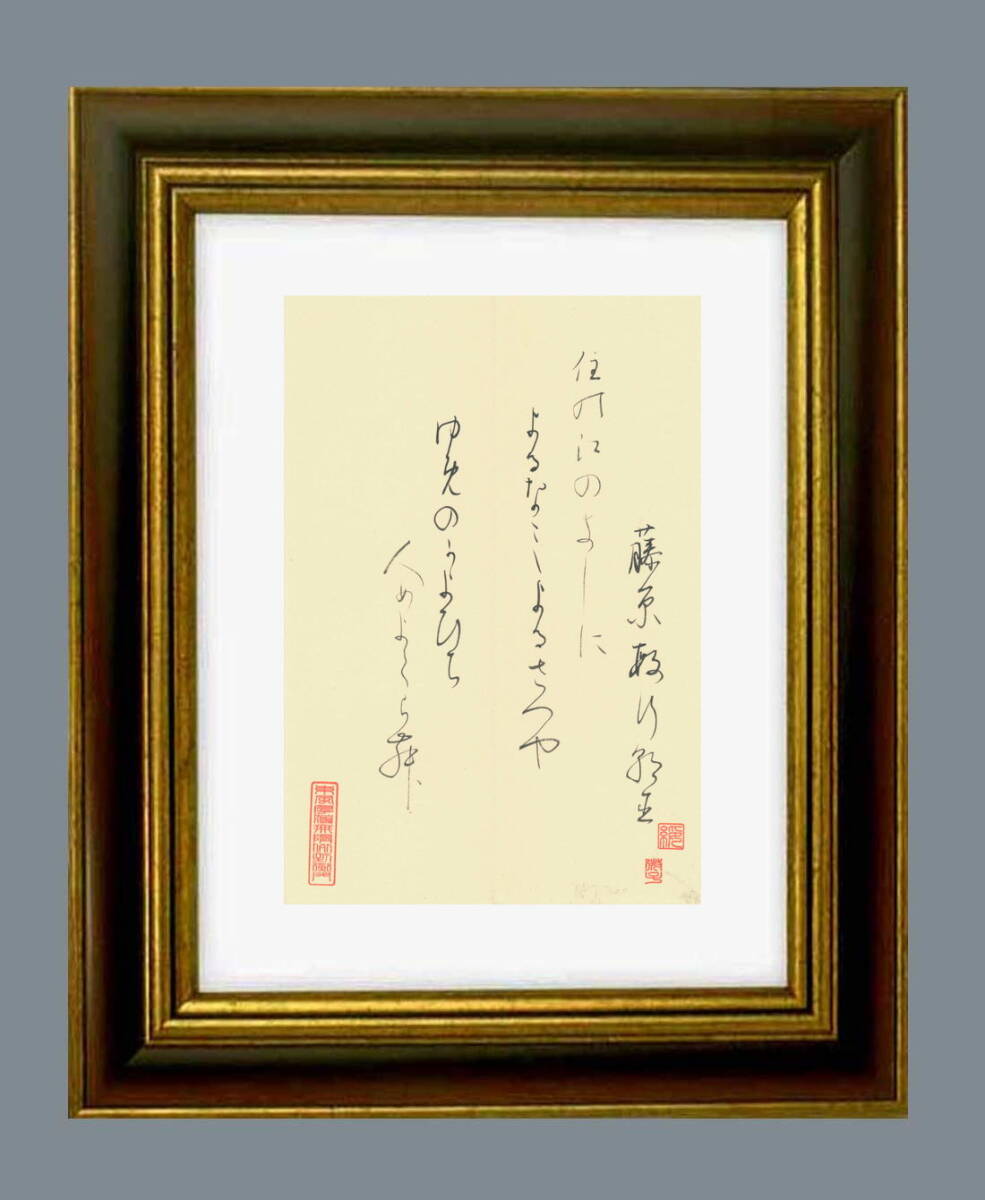 藤原敏行朝臣
住の江のきしに
よるなミよるさへや
ゆめのかよひち
人めよくら舞